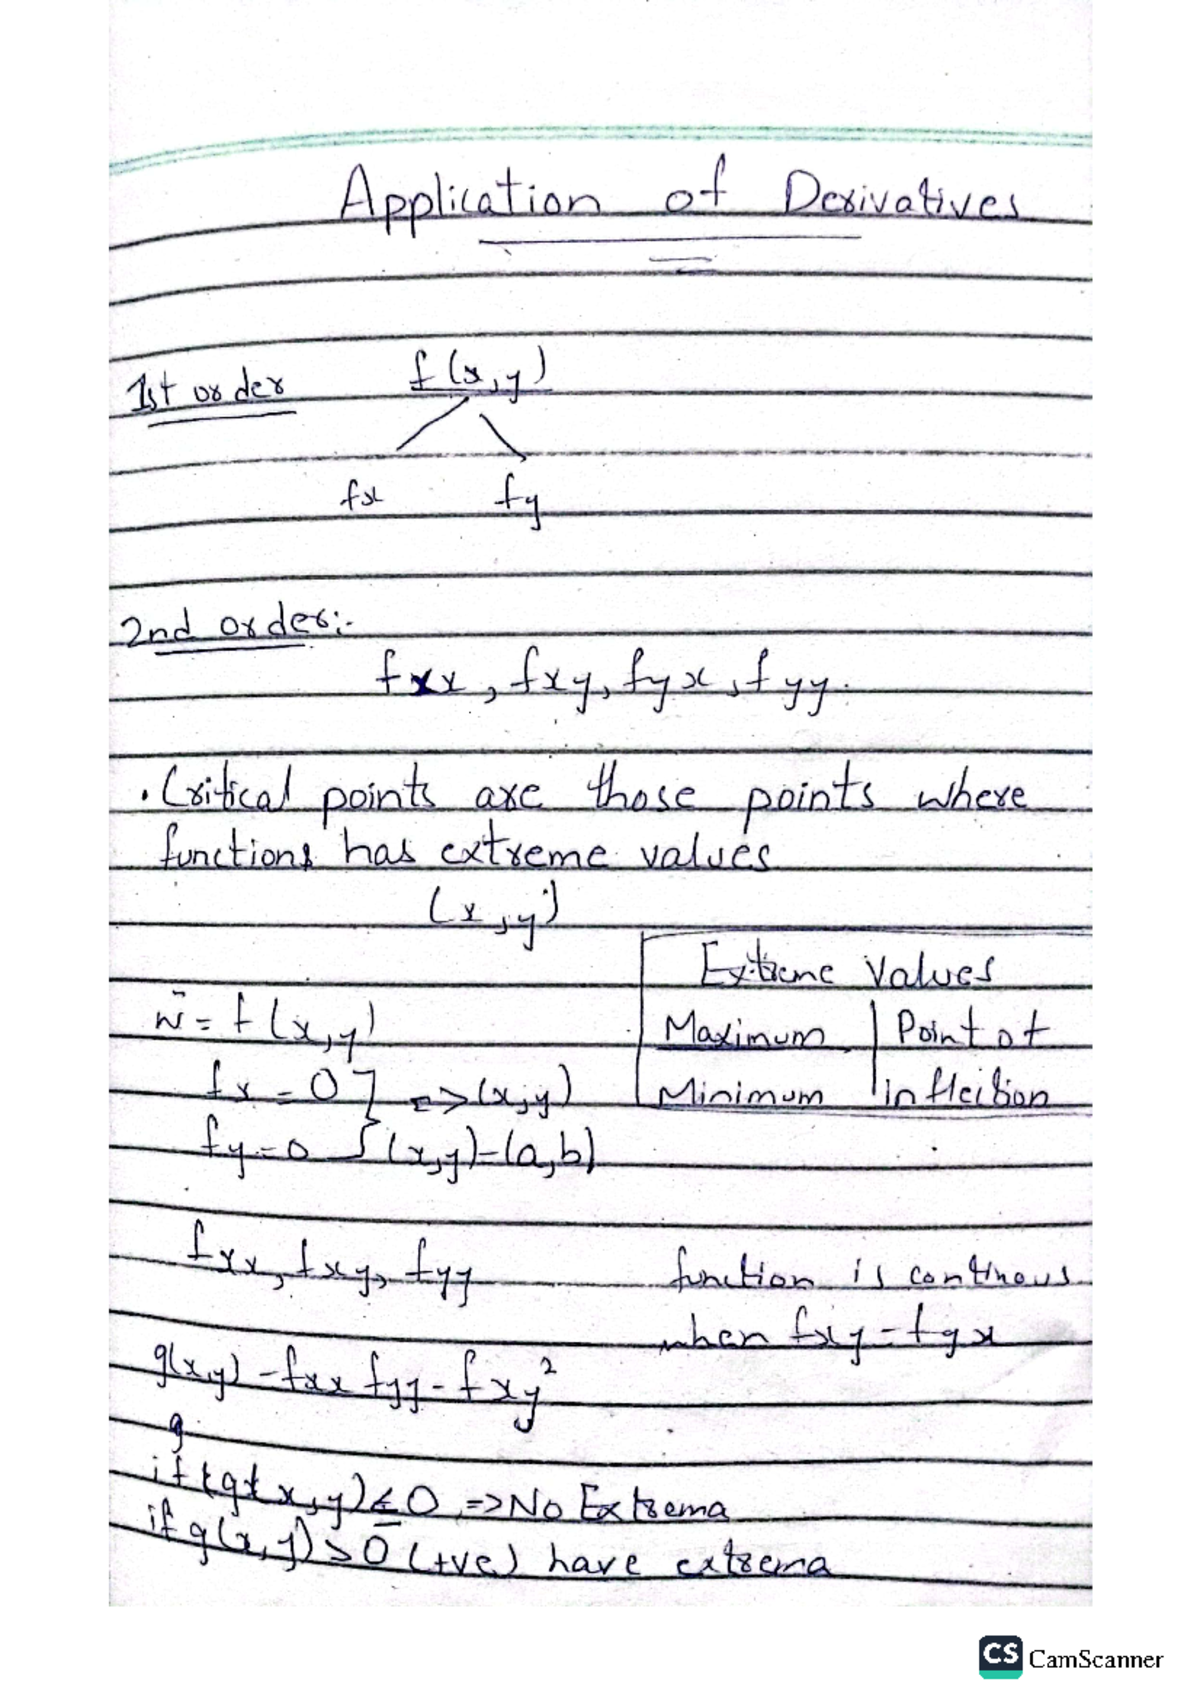 Application of Derivatives
1st order f(x,y)
fx fy
2nd order:-
fxx, fxy, fyx, fyy.
. Critical points are those points where
functions has extreme values
(x,y)
Extreme Values
Maximum | Point of
Minimum | infleibion
w = f(x,y)
fx = 0 ] => (x,y)
fy = 0 } (x,y) - (a,b)
fxx, fxy, fyy
function is continous
when fxy = fyx
g(x,y) - fxx fyy - fxy²
g
if g(x,y) ≤ 0 => No Extrema
if g(x,y) > 0 (+ve) have extrema
CS CamScanner